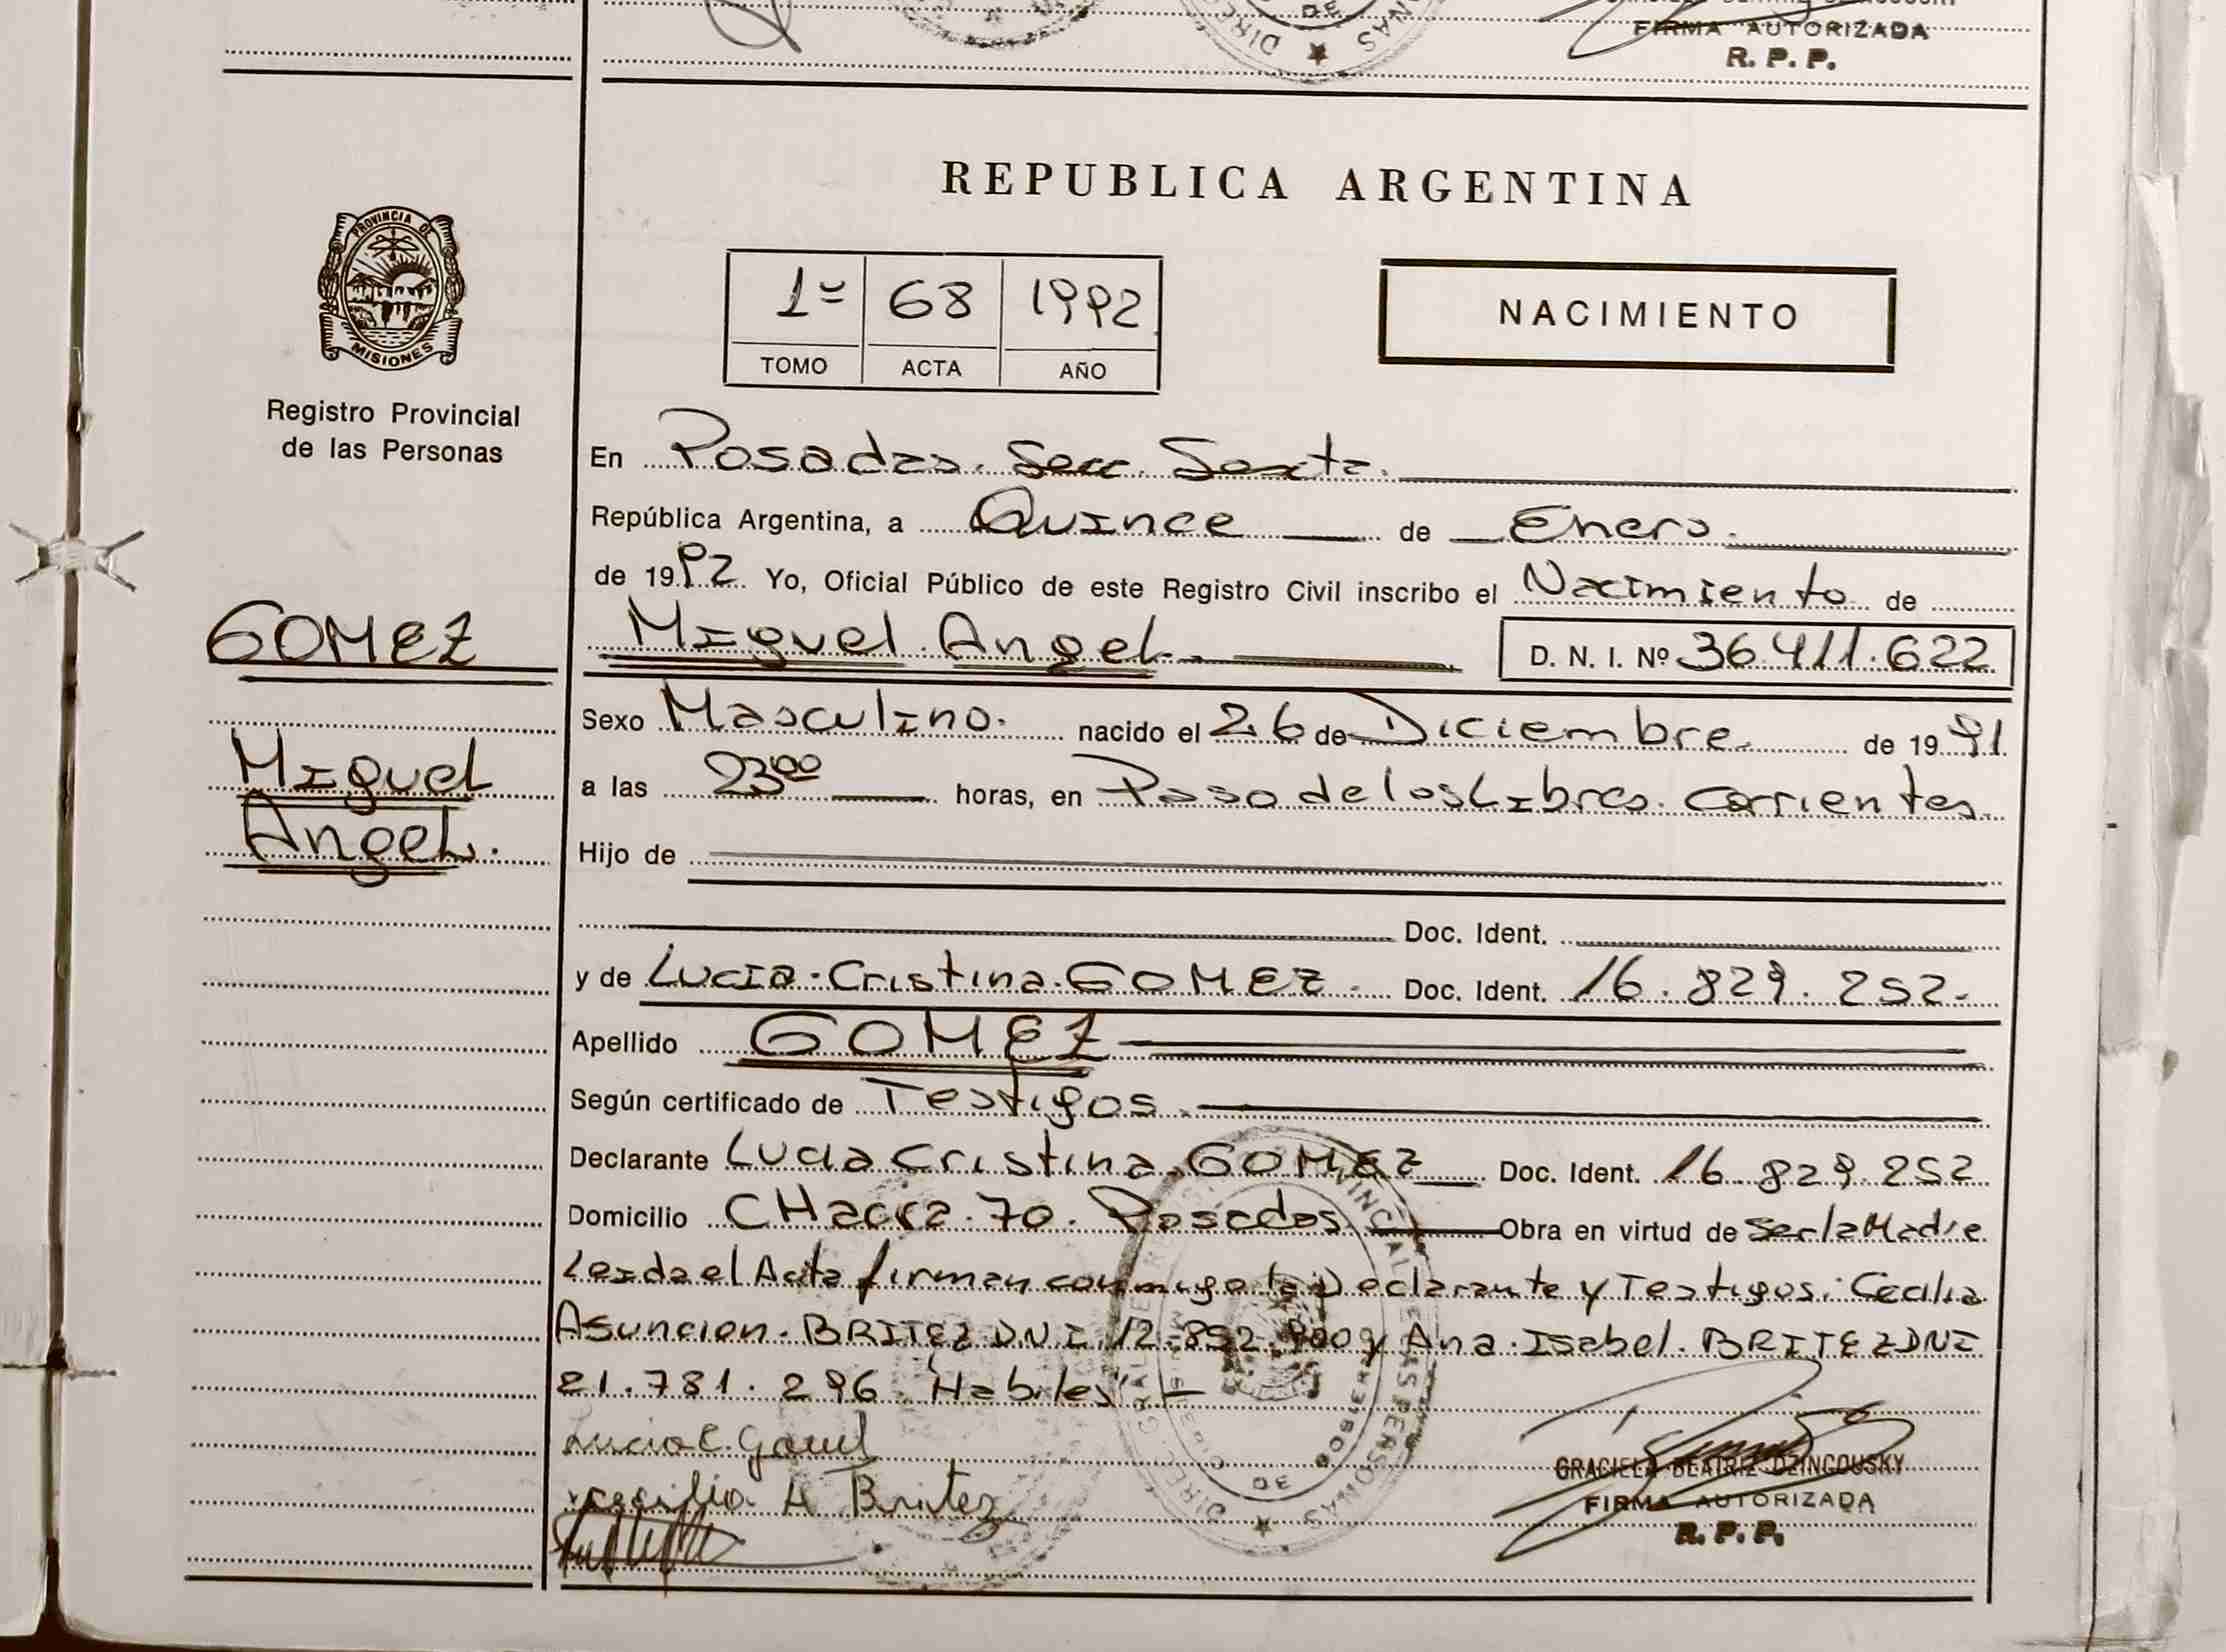 FIRMA AUTORIZADA
R. P. P.
REPUBLICA ARGENTINA
PROVINCIA DE
MISIONES
Registro Provincial
de las Personas
1º 68 1992
TOMO ACTA AÑO
NACIMIENTO
En Posadas. Secc. Sexta.
República Argentina, a Quince de Enero.
de 1992 Yo, Oficial Público de este Registro Civil inscribo el Nacimiento de
GOMEZ
Miguel
Angel.
Miguel Angel. D. N. I. Nº 36.411.622
Sexo Masculino. nacido el 26 de Diciembre. de 1991
a las 23⁰⁰ horas, en Paso de los Libres. Corrientes.
Hijo de
Doc. Ident.
y de Lucia Cristina GOMEZ. Doc. Ident. 16.829.252.
Apellido GOMEZ
Según certificado de Testigos.
Declarante Lucia Cristina GOMEZ Doc. Ident. 16.829.252
Domicilio CHacra 70. Posadas. Obra en virtud de Ser la Madre
Leida el Acta firman conmigo la Declarante y Testigos: Cecilia
Asuncion BRITEZ DNI 12.852.900 y Ana Isabel BRITEZ DNI
21.781.296 "Habiles" –
Lucia C. Gomez
Cecilia A Britez
GRACIELA BEATRIZ DZINCOUSKY
FIRMA AUTORIZADA
R. P. P.